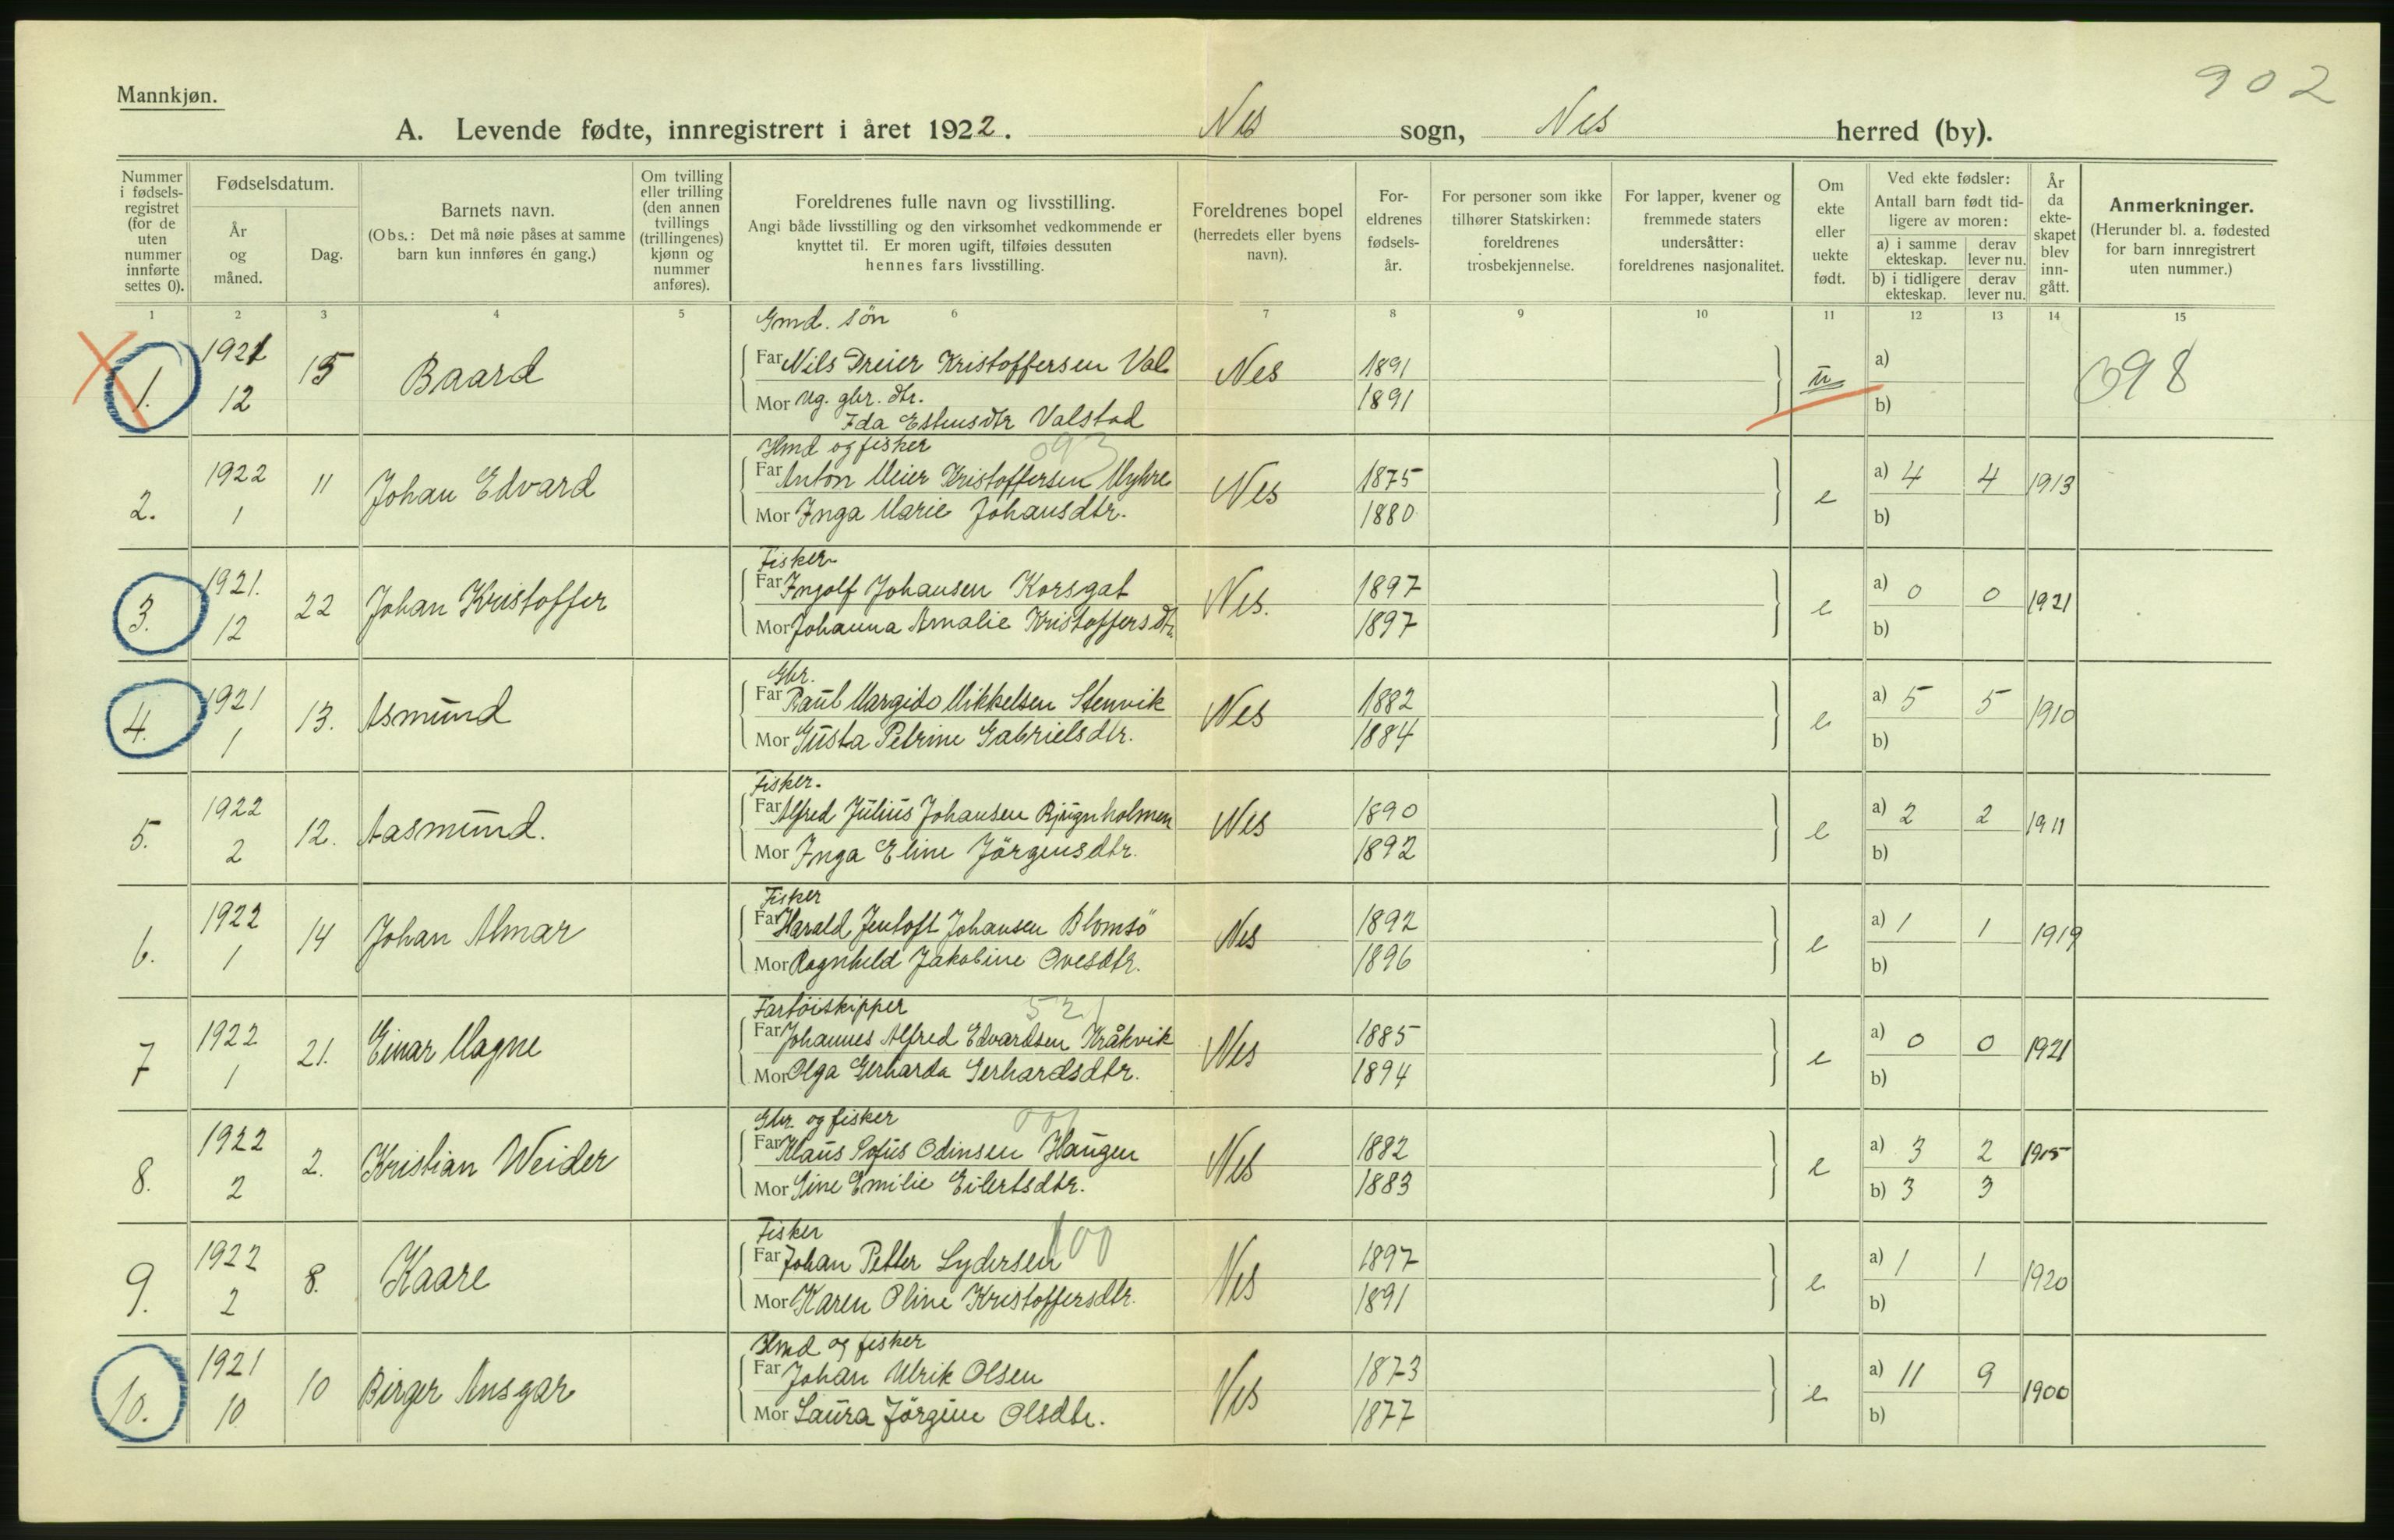 902
Mannkjøn.
A. Levende fødte, innregistrert i året 1922. Nes sogn, Nes herred (by).
Nummer i fødsels-registret (for de uten nummer innførte settes 0).
Fødselsdatum.
År og måned.
Dag.
Barnets navn.
(Obs.: Det må nøie påses at samme barn kun innføres én gang.)
Om tvilling eller trilling (den annen tvillings (trillingenes) kjønn og nummer anføres).
Foreldrenes fulle navn og livsstilling.
Angi både livsstilling og den virksomhet vedkommende er knyttet til. Er moren ugift, tilføies dessuten hennes fars livsstilling.
Foreldrenes bopel (herredets eller byens navn).
For-eldrenes fødsels-år.
For personer som ikke tilhører Statskirken: foreldrenes trosbekjennelse.
For lapper, kvener og fremmede staters undersåtter: foreldrenes nasjonalitet.
Om ekte eller uekte født.
Ved ekte fødsler: Antall barn født tid-ligere av moren:
a) i samme ekteskap. derav lever nu.
b) i tidligere ekteskap. derav lever nu.
År da ekte-skapet blev inn-gått.
Anmerkninger.
(Herunder bl. a. fødested for barn innregistrert uten nummer.)
1 2 3 4 5 6 7 8 9 10 11 12 13 14 15
Gmd. sön
1. 1921 15 Baard Far Nils Dreier Kristoffersen Val Nes 1891 u a) 098
12 Mor ug. gbr. dtr. 1891 b)
Ida Estensdtr Valstad
Hmd og fisker 093
2. 1922 11 Johan Edvard Far Anton Meier Kristoffersen Myhre Nes 1875 e a) 4 4 1913
1 Mor Inga Marie Johansdtr. 1880 b)
Fisker
3. 1921. 22 Johan Kristoffer Far Ingolf Johansen Korsgat Nes. 1897 e a) 0 0 1921
12 Mor Johanna Amalie Kristoffersdtr 1897 b)
Gbr.
4. 1921 13. Asmund Far Paul Margido Mikkelsen Stenvik Nes 1882 e a) 5 5 1910
1 Mor Gusta Petrine Gabrielsdtr. 1884 b)
Fisker.
5. 1922 12. Aasmund. Far Alfred Julius Johansen Bjugnholmen Nes 1890 e a) 2 2 1911
2 Mor Inga Eline Jörgensdtr. 1892 b)
Fisker
6. 1922 14 Johan Almar Far Harald Jentoft Johansen Blomsö Nes 1892 e a) 1 1 1919
1 Mor Ragnheld Jakobine Ovesdtr. 1896 b)
Fartöiskipper 521
7 1922 21. Einar Magne Far Johannes Alfred Edvardsen Kråkvik Nes 1885 e a) 0 0 1921
1 Mor Olga Gerharda Gerhardsdtr. 1894 b)
Gbr. og fisker 001
8. 1922 2. Kristian Weider Far Klaus Sofus Odinsen Haugen Nes 1882 e a) 3 2 1915
2 Mor Sine Emilie Eilertsdtr. 1883 b) 3 3
Fisker 100
9. 1922 8. Kaare Far Johan Petter Lydersen Nes 1897 e a) 1 1 1920
2 Mor Karen Oline Kristoffersdtr. 1891 b)
Hmd og fisker
10. 1921 10 Birger Ansgar Far Johan Ulrik Olsen Nes 1873 e a) 11 9 1900
10 Mor Laura Jörgine Olsdtr. 1877 b)